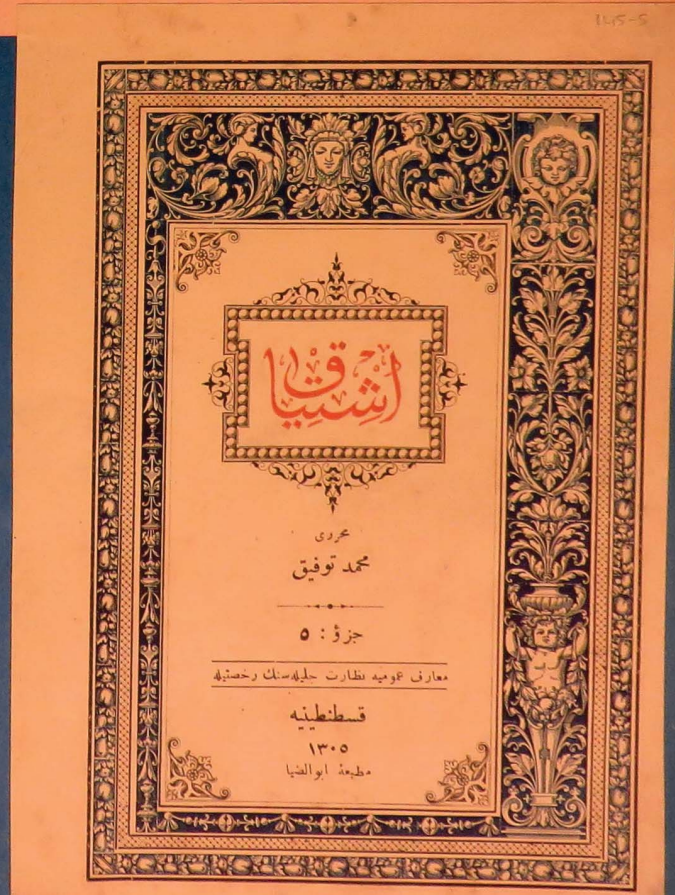 1145-5
اشتياق
محرری
محمد توفيق
جزؤ : ٥
معارف عموميه نظارت جليله‌سنك رخصتيله
قسطنطينيه
١٣٠٥
مطبعهٔ ابوالضيا